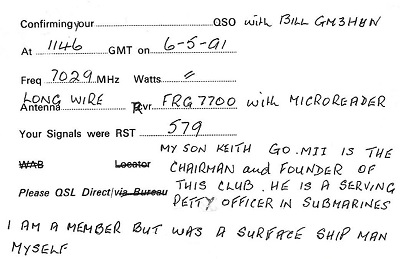 Confirming your QSO with BILL GM3HEN
At 1146 GMT on 6-5-91
Freq 7029 MHz Watts "
LONG WIRE
Antenna Rcvr FRG7700 with MICROREADER
Your Signals were RST 579
MY SON KEITH GO.MII IS THE
WAB Locator CHAIRMAN and FOUNDER OF
Please QSL Direct/via Bureau THIS CLUB. HE IS A SERVING
PETTY OFFICER IN SUBMARINES
I AM A MEMBER BUT WAS A SURFACE SHIP MAN
MYSELF